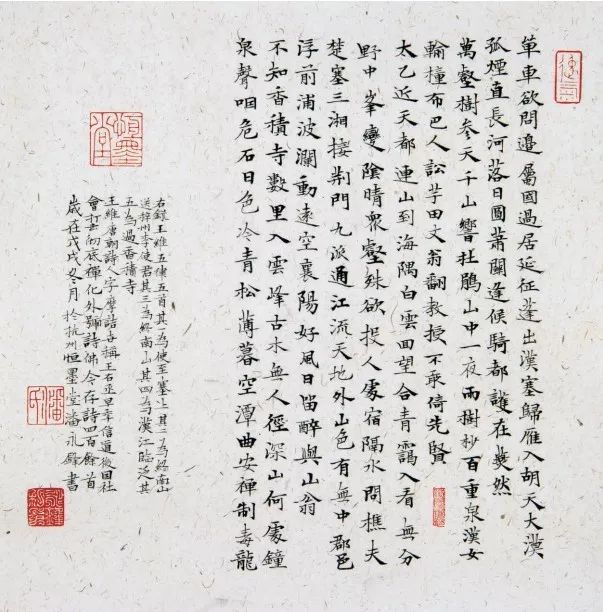 單車欲問邊屬國過居延征蓬出漢塞歸雁入胡天大漠
孤煙直長河落日圓蕭關逢候騎都護在燕然
萬壑樹參天千山響杜鵑山中一夜雨樹杪百重泉漢女
輸橦布巴人訟芋田文翁翻教授不敢倚先賢
太乙近天都連山到海隅白雲回望合青靄入看無分
野中峯變陰晴眾壑殊欲投人處宿隔水問樵夫
楚塞三湘接荊門九派通江流天地外山色有無中郡邑
浮前浦波瀾動遠空襄陽好風日留醉與山翁
不知香積寺數里入雲峰古木無人徑深山何處鐘
泉聲咽危石日色冷青松薄暮空潭曲安禪制毒龍
右錄王維五律五首其一為使至塞上其二為終南山
送梓州李使君其三為終南山其四為漢江臨泛其
五為過香積寺
王維唐朝詩人字摩詰世稱王右丞早年信道後因社
會打擊徹底禪化外號詩佛今存詩四百餘首
歲在戊戌冬月於杭州恒墨堂潘永書
恒墨堂
潘氏